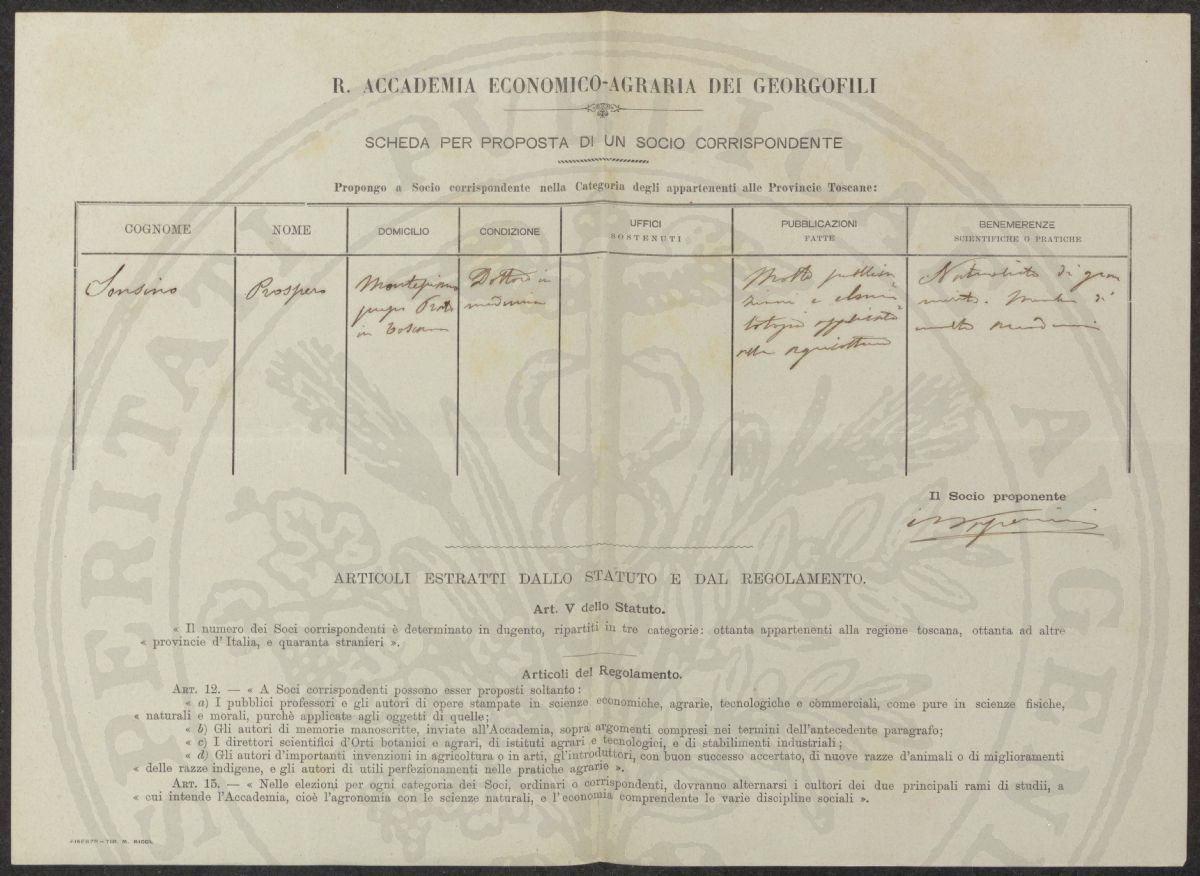 R. ACCADEMIA ECONOMICO-AGRARIA DEI GEORGOFILI
SCHEDA PER PROPOSTA DI UN SOCIO CORRISPONDENTE
Propongo a Socio corrispondente nella Categoria degli appartenenti alle Provincie Toscane:
COGNOME
NOME
DOMICILIO
CONDIZIONE
UFFICI
SOSTENUTI
PUBBLICAZIONI
FATTE
BENEMERENZE
SCIENTIFICHE O PRATICHE
Sonsino
Prospero
Montepiano
Prato
in Toscana
Dottore in
medicina
Molte pubblica=
zioni e elmin=
tologia applicata
alla agricoltura
Naturalista di gran
merito. Membro di
molte Accademie
Il Socio proponente
ARTICOLI ESTRATTI DALLO STATUTO E DAL REGOLAMENTO.
Art. V dello Statuto.
« Il numero dei Soci corrispondenti è determinato in dugento, ripartiti in tre categorie: ottanta appartenenti alla regione toscana, ottanta ad altre
« provincie d'Italia, e quaranta stranieri ».
Articoli del Regolamento.
ART. 12. — « A Soci corrispondenti possono esser proposti soltanto:
« a) I pubblici professori e gli autori di opere stampate in scienze economiche, agrarie, tecnologiche e commerciali, come pure in scienze fisiche,
« naturali e morali, purchè applicate agli oggetti di quelle;
« b) Gli autori di memorie manoscritte, inviate all'Accademia, sopra argomenti compresi nei termini dell'antecedente paragrafo;
« c) I direttori scientifici d'Orti botanici e agrari, di istituti agrari e tecnologici, e di stabilimenti industriali;
« d) Gli autori d'importanti invenzioni in agricoltura o in arti, gl'introduttori, con buon successo accertato, di nuove razze d'animali o di miglioramenti
« delle razze indigene, e gli autori di utili perfezionamenti nelle pratiche agrarie ».
ART. 15. — « Nelle elezioni per ogni categoria dei Soci, ordinari o corrispondenti, dovranno alternarsi i cultori dei due principali rami di studii, a
« cui intende l'Accademia, cioè l'agronomia con le scienze naturali, e l'economia comprendente le varie discipline sociali ».
FIRENZE – TIP. M. RICCI.